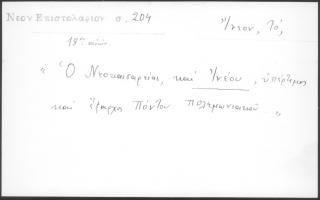 Νεον Επιστολαριον σ. 204
Ἴνεον, Τό,
18ος αἰών.
" Ὁ Νεοκαισαρείας, καὶ Ἰνέου, ὑπέρτιμος
καὶ ἔξαρχος Πόντου Πολεμωνιακοῦ "